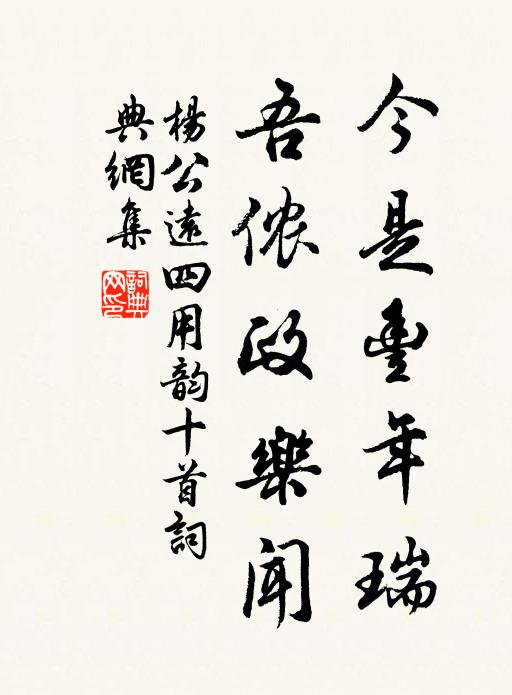 今是豐年瑞
吾侬政樂聞
楊公遠四用韵十首詞
典網集
詞典网印